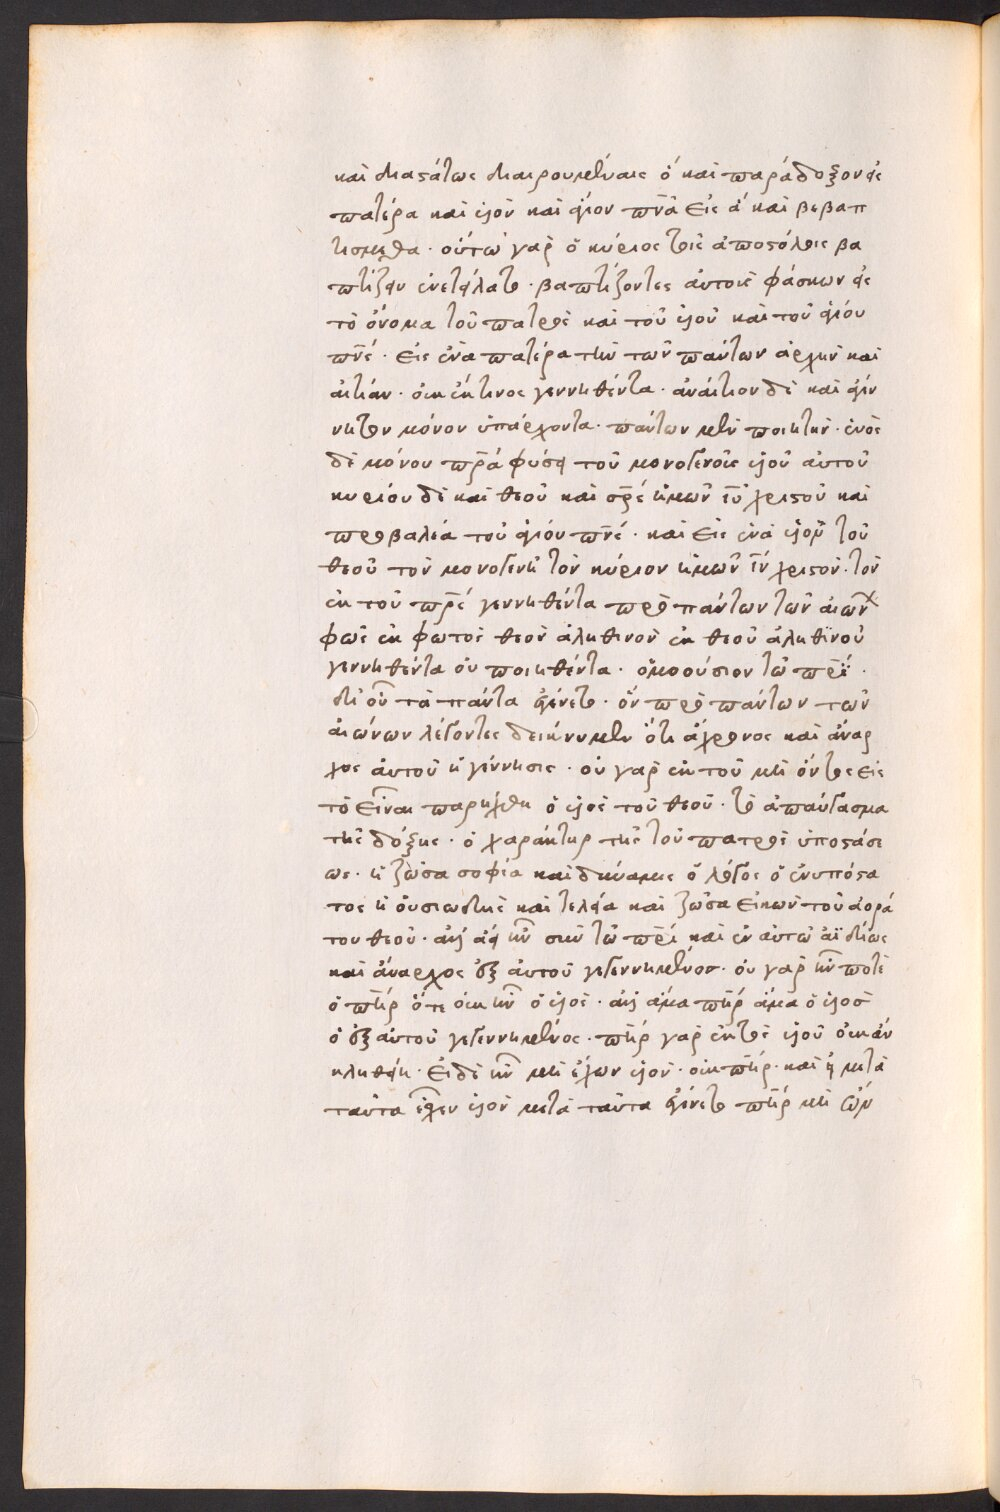 καὶ διαστάτως διαιρουμέναις ὃ καὶ παράδοξον εἰς
πατέρα καὶ υἱὸν καὶ ἅγιον πνᾶ εἰς ἃ καὶ βεβαπ
τίσμεθα · οὕτω γὰρ ὁ κύριος τοῖς ἀποστόλοις βα
πτίζειν ἐνετείλατο · βαπτίζοντες αὐτοὺς φάσκων εἰς
τὸ ὄνομα τοῦ πατρὸς καὶ τοῦ υἱοῦ καὶ τοῦ ἁγίου
πνς · εἰς ἕνα πατέρα τὴν τῶν πάντων ἀρχὴν καὶ
αἰτίαν · οὐκ ἔκ τινος γεννηθέντα · ἀναίτιον δὲ καὶ ἀγέν
νητον μόνον ὑπάρχοντα · πάντων μὲν ποιητὴν · ἑνὸς
δὲ μόνου πρᾶ φύσει τοῦ μονογενοῦς υἱοῦ αὐτοῦ
κυρίου δὲ καὶ θεοῦ καὶ σρς ἡμῶν ιυ χριστοῦ καὶ
προβολέα τοῦ ἁγίου πνς · καὶ εἰς ἕνα υἱὸν τοῦ
θεοῦ τὸν μονογενῆ τὸν κύριον ἡμῶν ιν χριστὸν · τὸν
ἐκ τοῦ πρς γεννηθέντα πρὸ πάντων τῶν αἰων
φῶς ἐκ φωτὸς θεὸν ἀληθινὸν ἐκ θεοῦ ἀληθινοῦ
γεννηθέντα οὐ ποιηθέντα · ὁμοούσιον τῶ πρι ·
δι οὗ τὰ πάντα ἐγένετο · ὃν πρὸ πάντων τῶν
αἰώνων λέγοντες δείκνυμεν ὅτι ἄχρονος καὶ ἄναρ
χος αὐτοῦ ἡ γέννησις · οὐ γὰρ ἐκ τοῦ μὴ ὄντος εἰς
τὸ εἶναι παρήχθη ὁ υἱὸς τοῦ θεοῦ · τὸ ἀπαύγασμα
τῆς δόξης · ὁ χαρακτὴρ τῆς τοῦ πατρὸς ὑποστάσε
ως · ἡ ζῶσα σοφία καὶ δύναμις ὁ λόγος ὁ ἐνυπόστα
τος ἡ οὐσιώδης καὶ τελεία καὶ ζῶσα εἰκὼν τοῦ ἀορά
του θεοῦ · ἀλλ ἀεὶ ἦν σὺν τῶ πρι καὶ ἐν αὐτῶ ἀϊδίως
καὶ ἄναρχος ἐξ αὐτοῦ γεγεννημένος · οὐ γὰρ ἦν ποτὲ
ὁ πηρ ὅτε οὐκ ἦν ὁ υἱός · ἀλλ ἅμα πηρ ἅμα ὁ υἱὸς
ὁ ἐξ αὐτοῦ γεγεννημένος · πηρ γὰρ ἐκτὸς υἱοῦ οὐκ ἂν
κληθείη · εἰ δὲ ἦν μὴ ἔχων υἱὸν · οὐκ πηρ · καὶ εἰ μετὰ
ταῦτα ἔσχεν υἱὸν μετὰ ταῦτα ἐγένετο πηρ μὴ ὢν